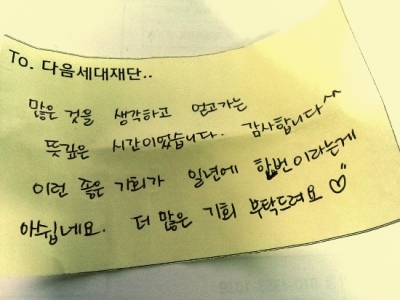 To. 다음세대재단..
많은 것을 생각하고 얻고가는
뜻깊은 시간이었습니다. 감사합니다^^
이런 좋은 기회가 일년에 한번이라는게
아쉽네요. 더 많은 기회 부탁드려요♡